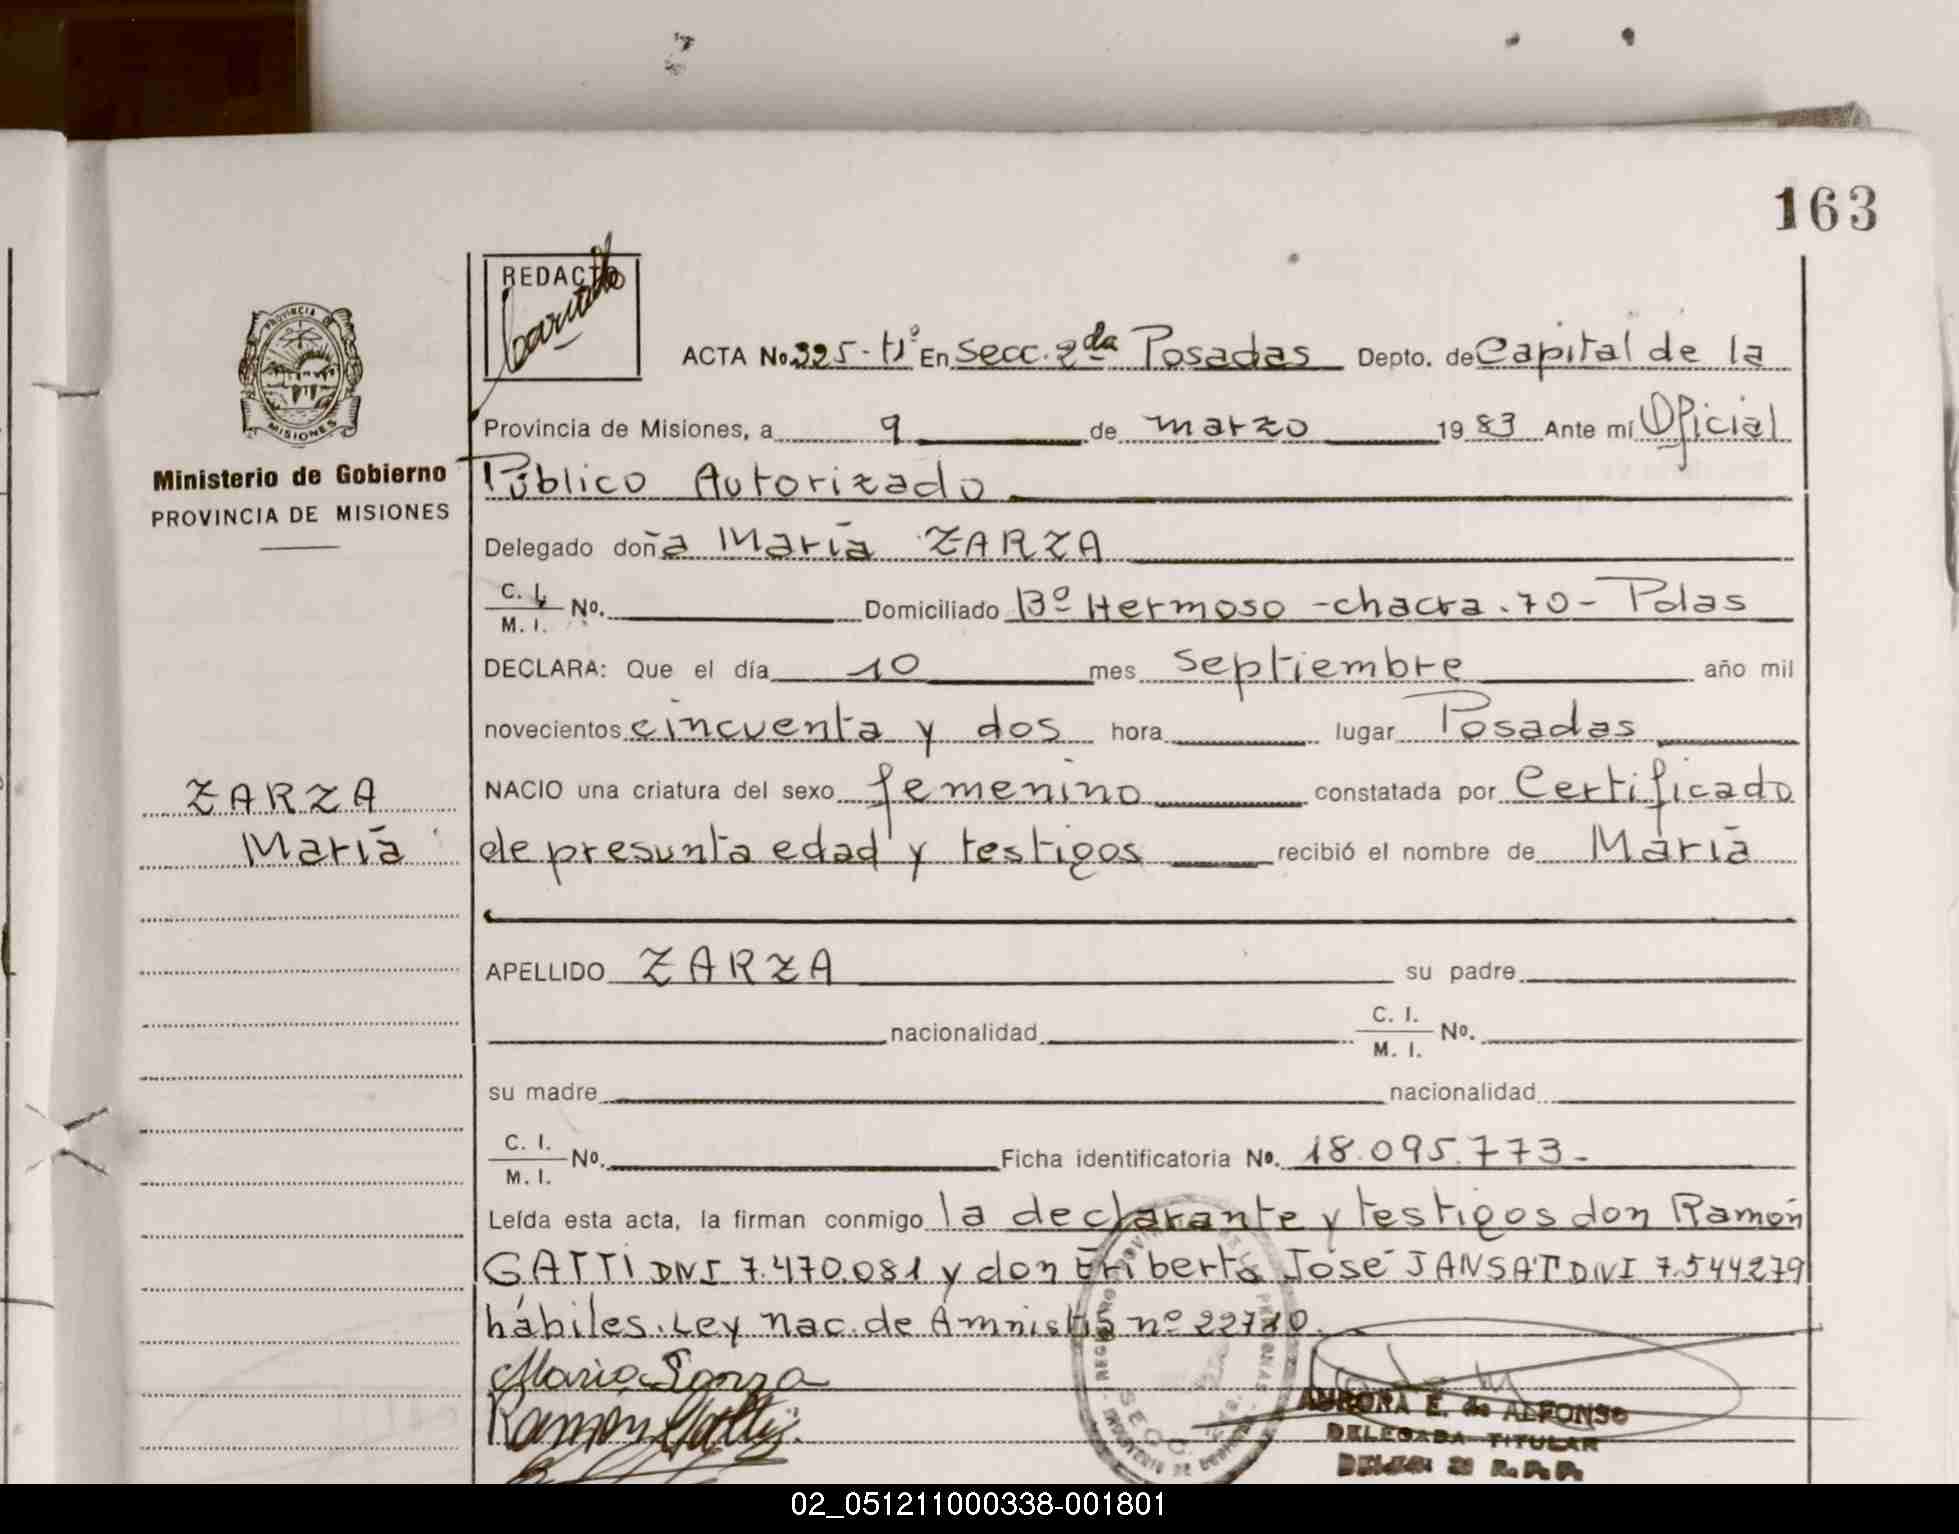 163
REDACTO
ACTA No. 325-tº En Secc. 2da Posadas Depto. de Capital de la
PROVINCIA DE
MISIONES
Provincia de Misiones, a 9 de marzo 1983 Ante mí Oficial
Ministerio de Gobierno
Público Autorizado
PROVINCIA DE MISIONES
Delegado doña María ZARZA
C. I. / M. I. No. Domiciliado Bº Hermoso - chacra . 70 - Pdas
DECLARA: Que el día 10 mes septiembre año mil
novecientos cincuenta y dos hora lugar Posadas
ZARZA
NACIO una criatura del sexo femenino constatada por Certificado
María
de presunta edad y testigos recibió el nombre de María
APELLIDO ZARZA su padre
nacionalidad C. I. / M. I. No.
su madre nacionalidad
C. I. / M. I. No. Ficha identificatoria No. 18.095.773-
Leída esta acta, la firman conmigo la declarante y testigos don Ramón
GATTI DNI 7.470.081 y don Eriberto José JANSAT DNI 7.544279
hábiles. Ley nac. de Amnistía nº 22710.
Maria Sarza
Ramon Gatti
AURORA E. de ALFONSO
DELEGADA TITULAR
R. P. P.
02_051211000338-001801